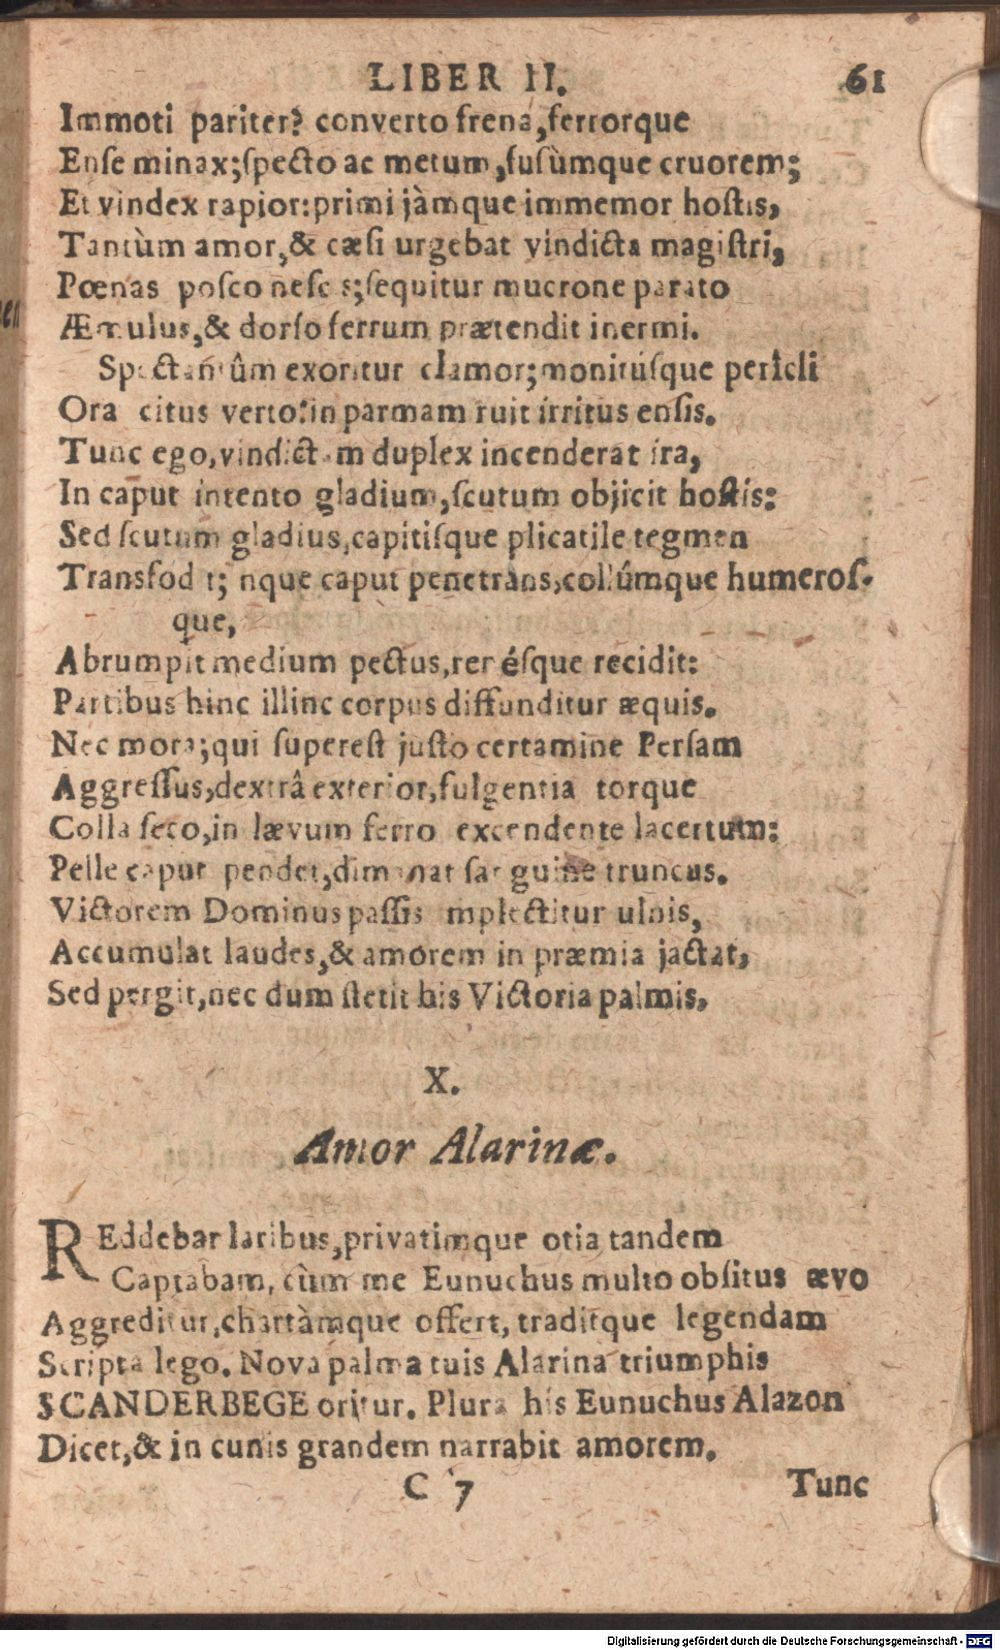 LIBER II. 61
Immoti pariter? converto frena, ferrorque
Ense minax; specto ac metum, fusùmque cruorem;
Et vindex rapior: primi jàmque immemor hostis,
Tantùm amor, & cæsi urgebat vindicta magistri,
Pœnas posco nefc s; sequitur mucrone parato
Æmulus, & dorso ferrum prætendit inermi.
Spectantûm exoritur clamor; monitúsque pericli
Ora citus verto: in parmam ruit irritus ensis.
Tunc ego, vindictam duplex incenderat ira,
In caput intento gladium, scutum objicit hostis:
Sed scutum gladius, capitisque plicatile tegmen
Transfod t; nque caput penetrans, collúmque humeros-
que,
Abrumpit medium pectus, ren ésque recidit:
Partibus hinc illinc corpus diffunditur æquis.
Nec mora; qui superest justo certamine Persam
Aggressus, dextrâ exterior, fulgentia torque
Colla seco, in lævum ferro excendente lacertum:
Pelle caput pendet, dimanat sanguine truncus.
Victorem Dominus passis mplectitur ulnis,
Accumulat laudes, & amorem in præmia jactat,
Sed pergit, nec dum stetit his Victoria palmis,
X.
Amor Alarinæ.
REddebar laribus, privatimque otia tandem
Captabam, cùm me Eunuchus multo obsitus ævo
Aggreditur, chartàmque offert, traditque legendam
Scripta lego. Nova palma tuis Alarina triumphis
SCANDERBEGE oritur. Plura his Eunuchus Alazon
Dicet, & in cunis grandem narrabit amorem.
C 7 Tunc
Digitalisierung gefördert durch die Deutsche Forschungsgemeinschaft - DFG